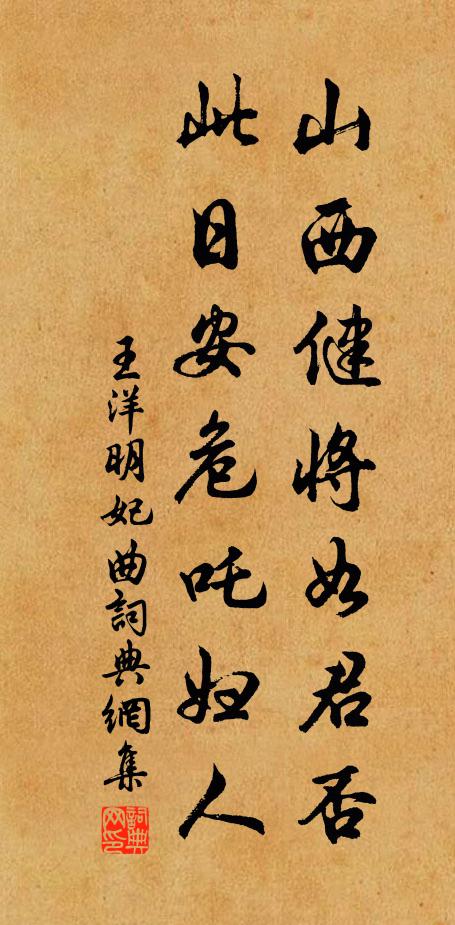 山西健将如君否
此日安危吒妇人
王洋明妃曲詞典網集
詞典网印